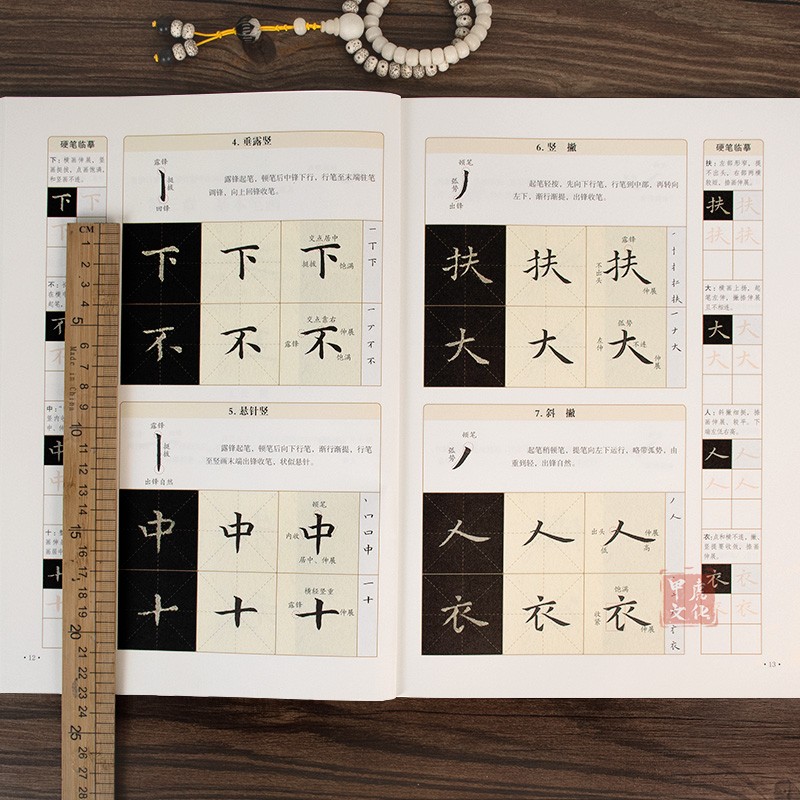 硬笔临摹
下：横画伸展，竖
画挺拔，点画饱满，
和竖画不连。
下 下
下 下
不
中
十
·12·
4. 垂露竖
露锋
挺拔
回锋
露锋起笔，顿笔后中锋下行，行笔至末端驻笔
调锋，向上回锋收笔。
下 下 下
交点居中
挺拔
饱满
一 丁 下
不 不 不
交点靠右
伸展
露锋
饱满
一 ア 不 不
5. 悬针竖
露锋
挺拔
出锋自然
露锋起笔，顿笔后向下行笔，渐行渐提，行笔
至竖画末端出锋收笔，状似悬针。
中 中 中
顿笔
内收
居中、伸展
丶 口 口 中
十 十 十
横轻竖重
露锋
伸展
一 十
6. 竖 撇
顿笔
弧势
出锋
起笔轻按，先向下行笔，行笔到中部，再转向
左下，渐行渐提，出锋收笔。
扶 扶 扶
露锋
不出头
伸展
大 大 大
弧势
左伸
不连
伸展
一 ナ 大
7. 斜 撇
顿笔
弧势
起笔稍顿笔，提笔向左下运行，略带弧势，由
重到轻，出锋自然。
人 人 人
出头
低
伸展
高
丿 人
衣 衣 衣
饱满
收紧
伸展
硬笔临摹
扶：左部形窄，提
不出头，右部两横
扶 扶
扶 扶
大：横画上扬，起
笔左伸，撇捺伸展
且不相连。
大 大
大 大
人：斜撇细挺，捺
画伸展、较平，下
端左低右高。
人 人
人 人
衣：点和横不连，撇、
竖提要收敛，捺画
伸展。
衣 衣
·13·
甲虎
文化
CM
1
2
3
4
5
6
7
8
9
10
11
12
13
14
15
16
17
18
19
20
21
22
23
24
25
26
27
28
Made in China